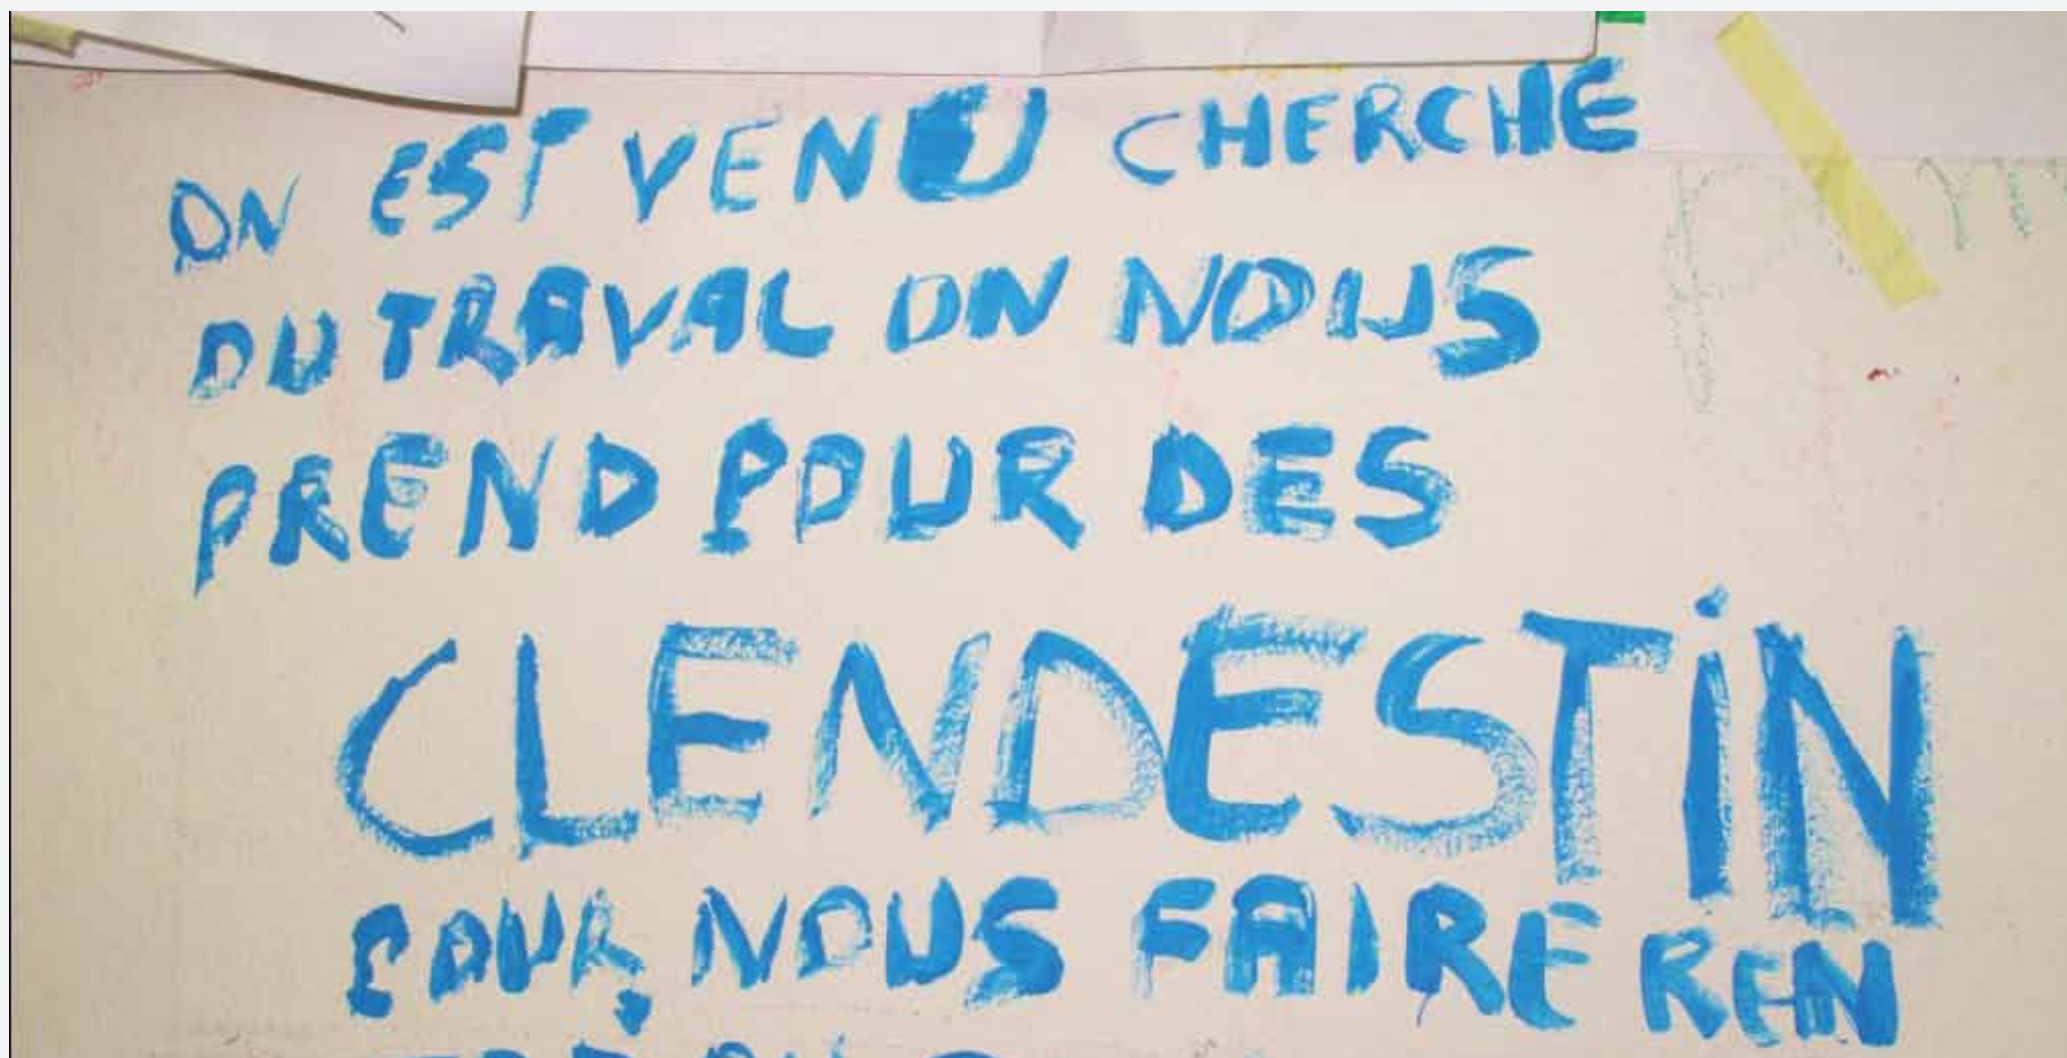 ON EST VENU CHERCHE
DU TRAVAL ON NOUS
PREND POUR DES
CLENDESTiN
POUR NOUS FAIRE REN